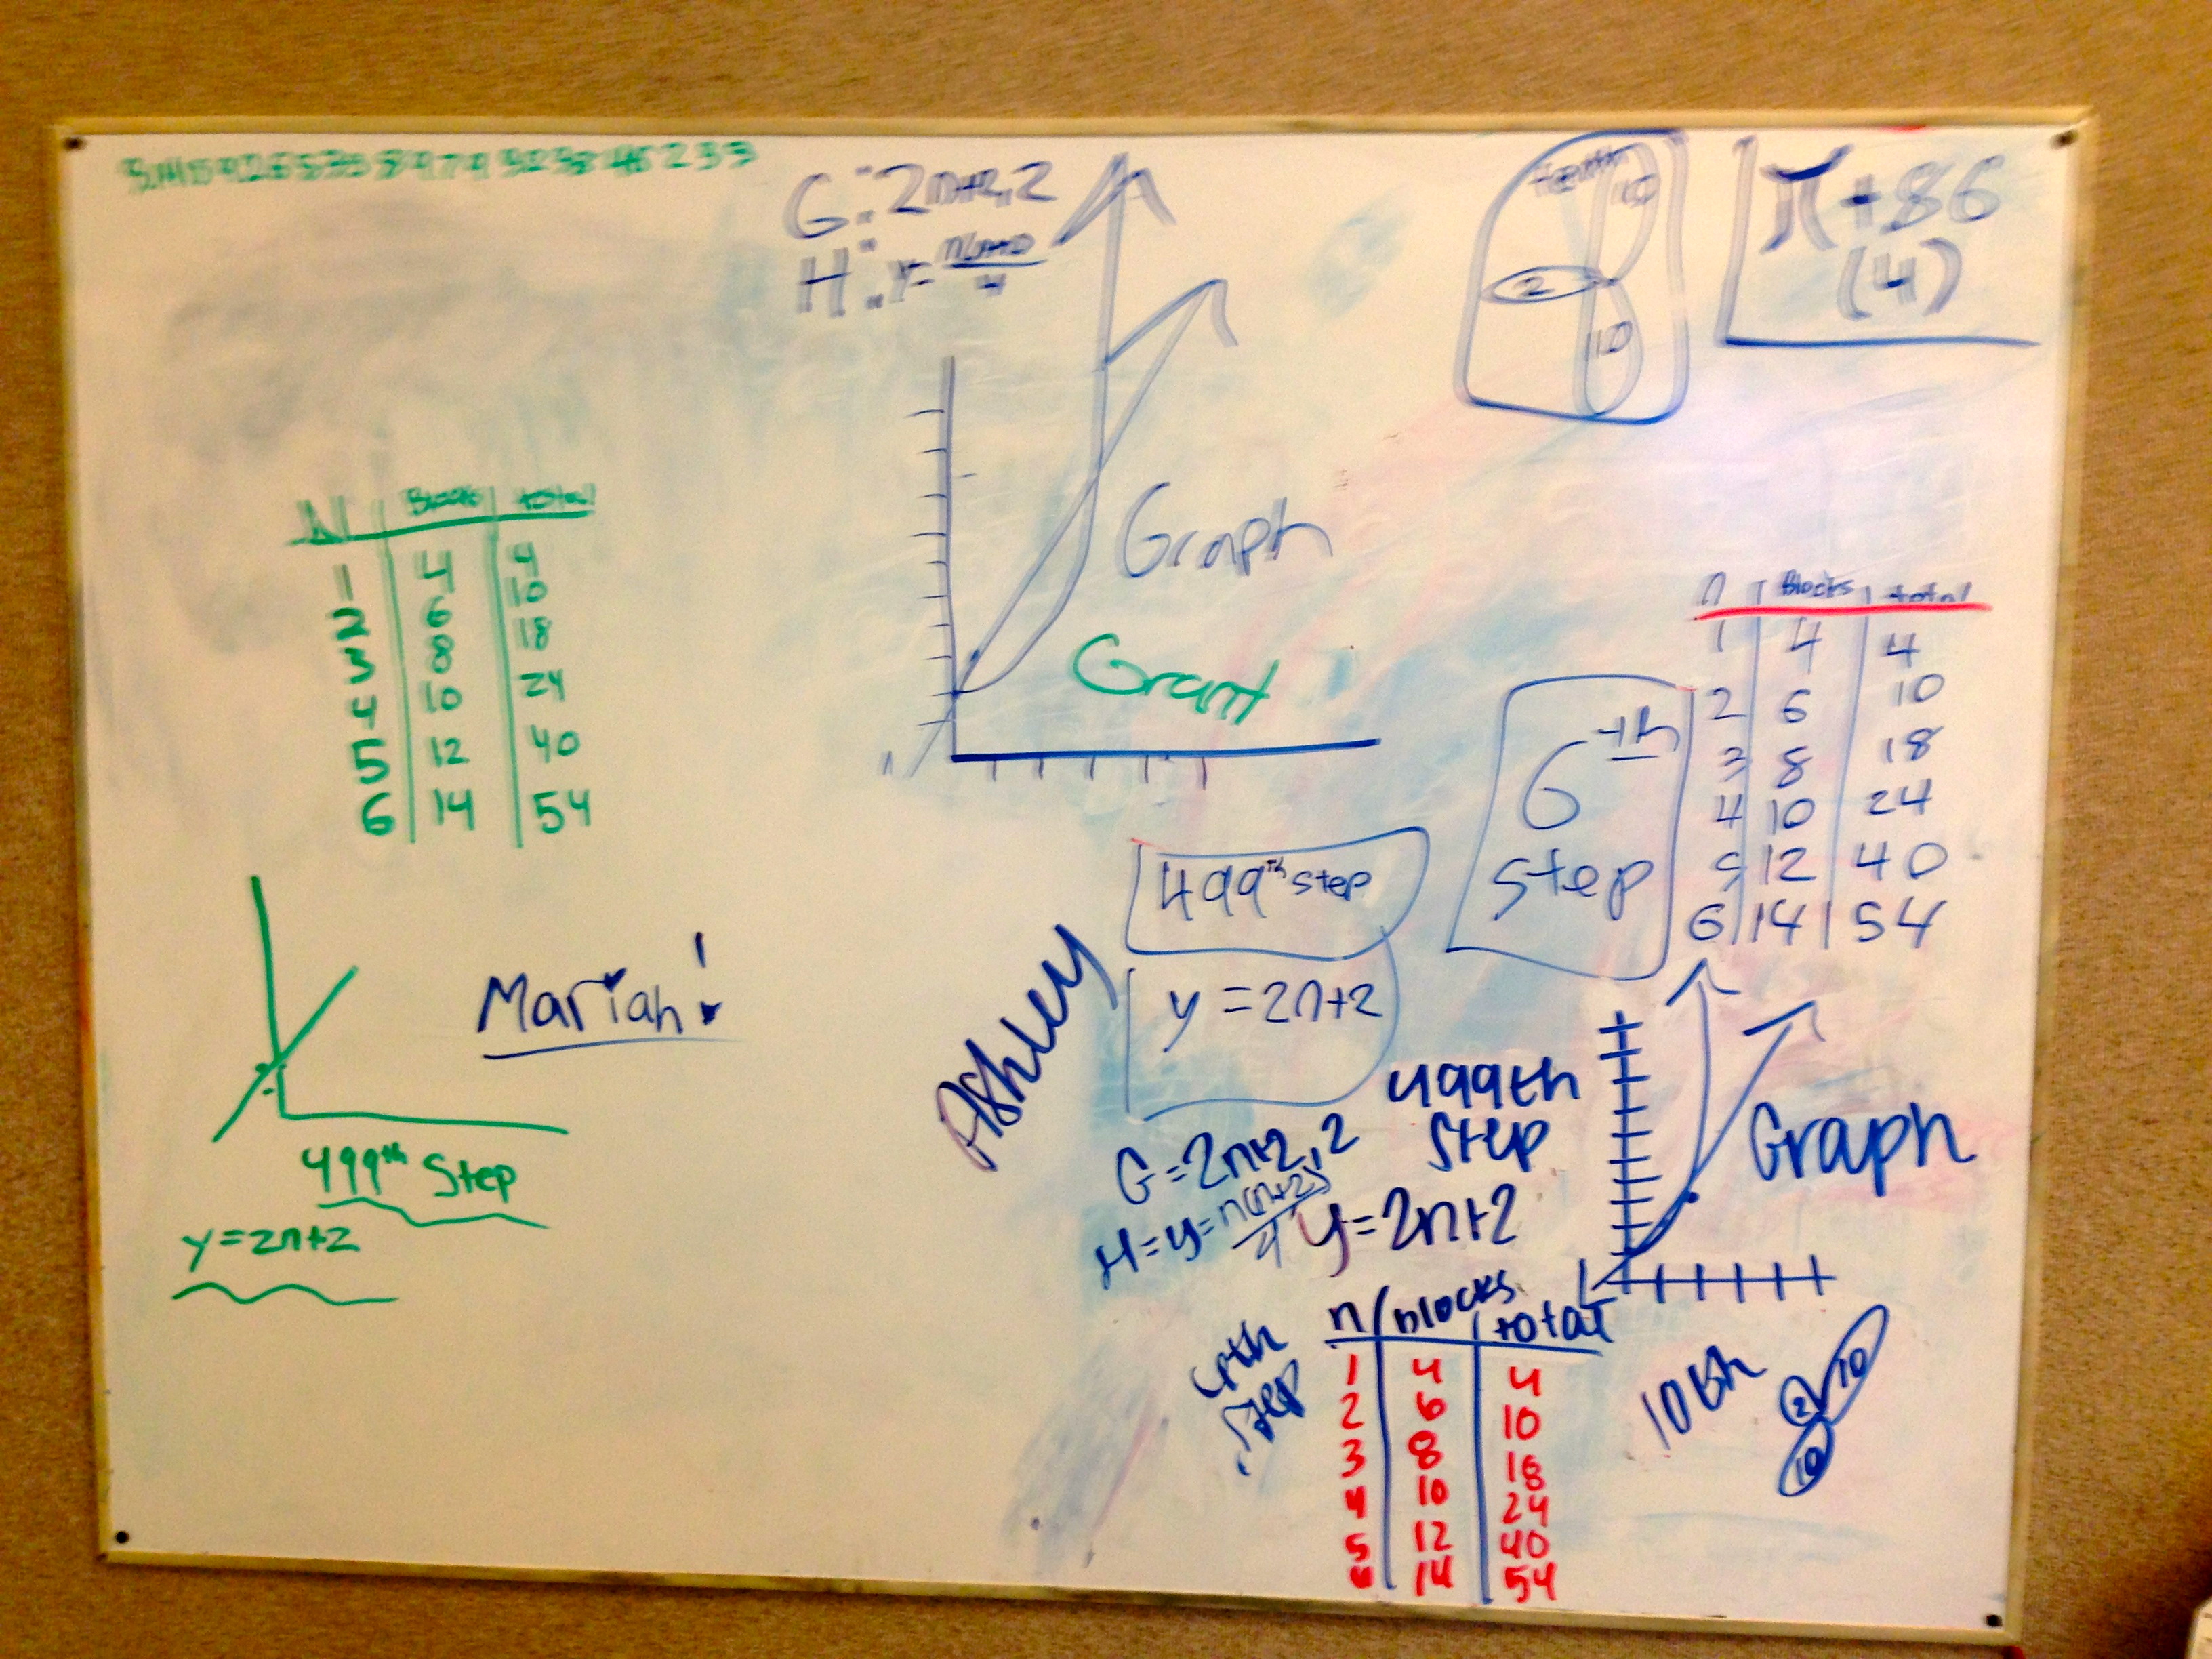 G: 2n+2, 2
H: Y=
4
tenth
10
2
10
π+86
(4)
N Blocks total
1 4 4
2 6 10
3 8 18
4 10 24
5 12 40
6 14 54
Graph
Grant
n Blocks total
1 4 4
2 6 10
3 8 18
4 10 24
5 12 40
6 14 54
6th
step
499th step
y = 2n+2
Mariah!
Ashley
499th Step
y=2n+2
499th
Step
y=2n+2
G=2n+2, 2
H=y=n(n+2)/4
Graph
step
n blocks total
1 4 4
2 6 10
3 8 18
4 10 24
5 12 40
6 14 54
10th
2
10
10